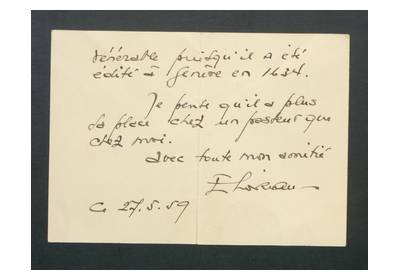 vénérable puisqu'il a été
édité à Genève en 1634.
Je pense qu'il a plus
sa place chez un pasteur que
chez moi.
avec toute mon amitié
Ce 27.5.59